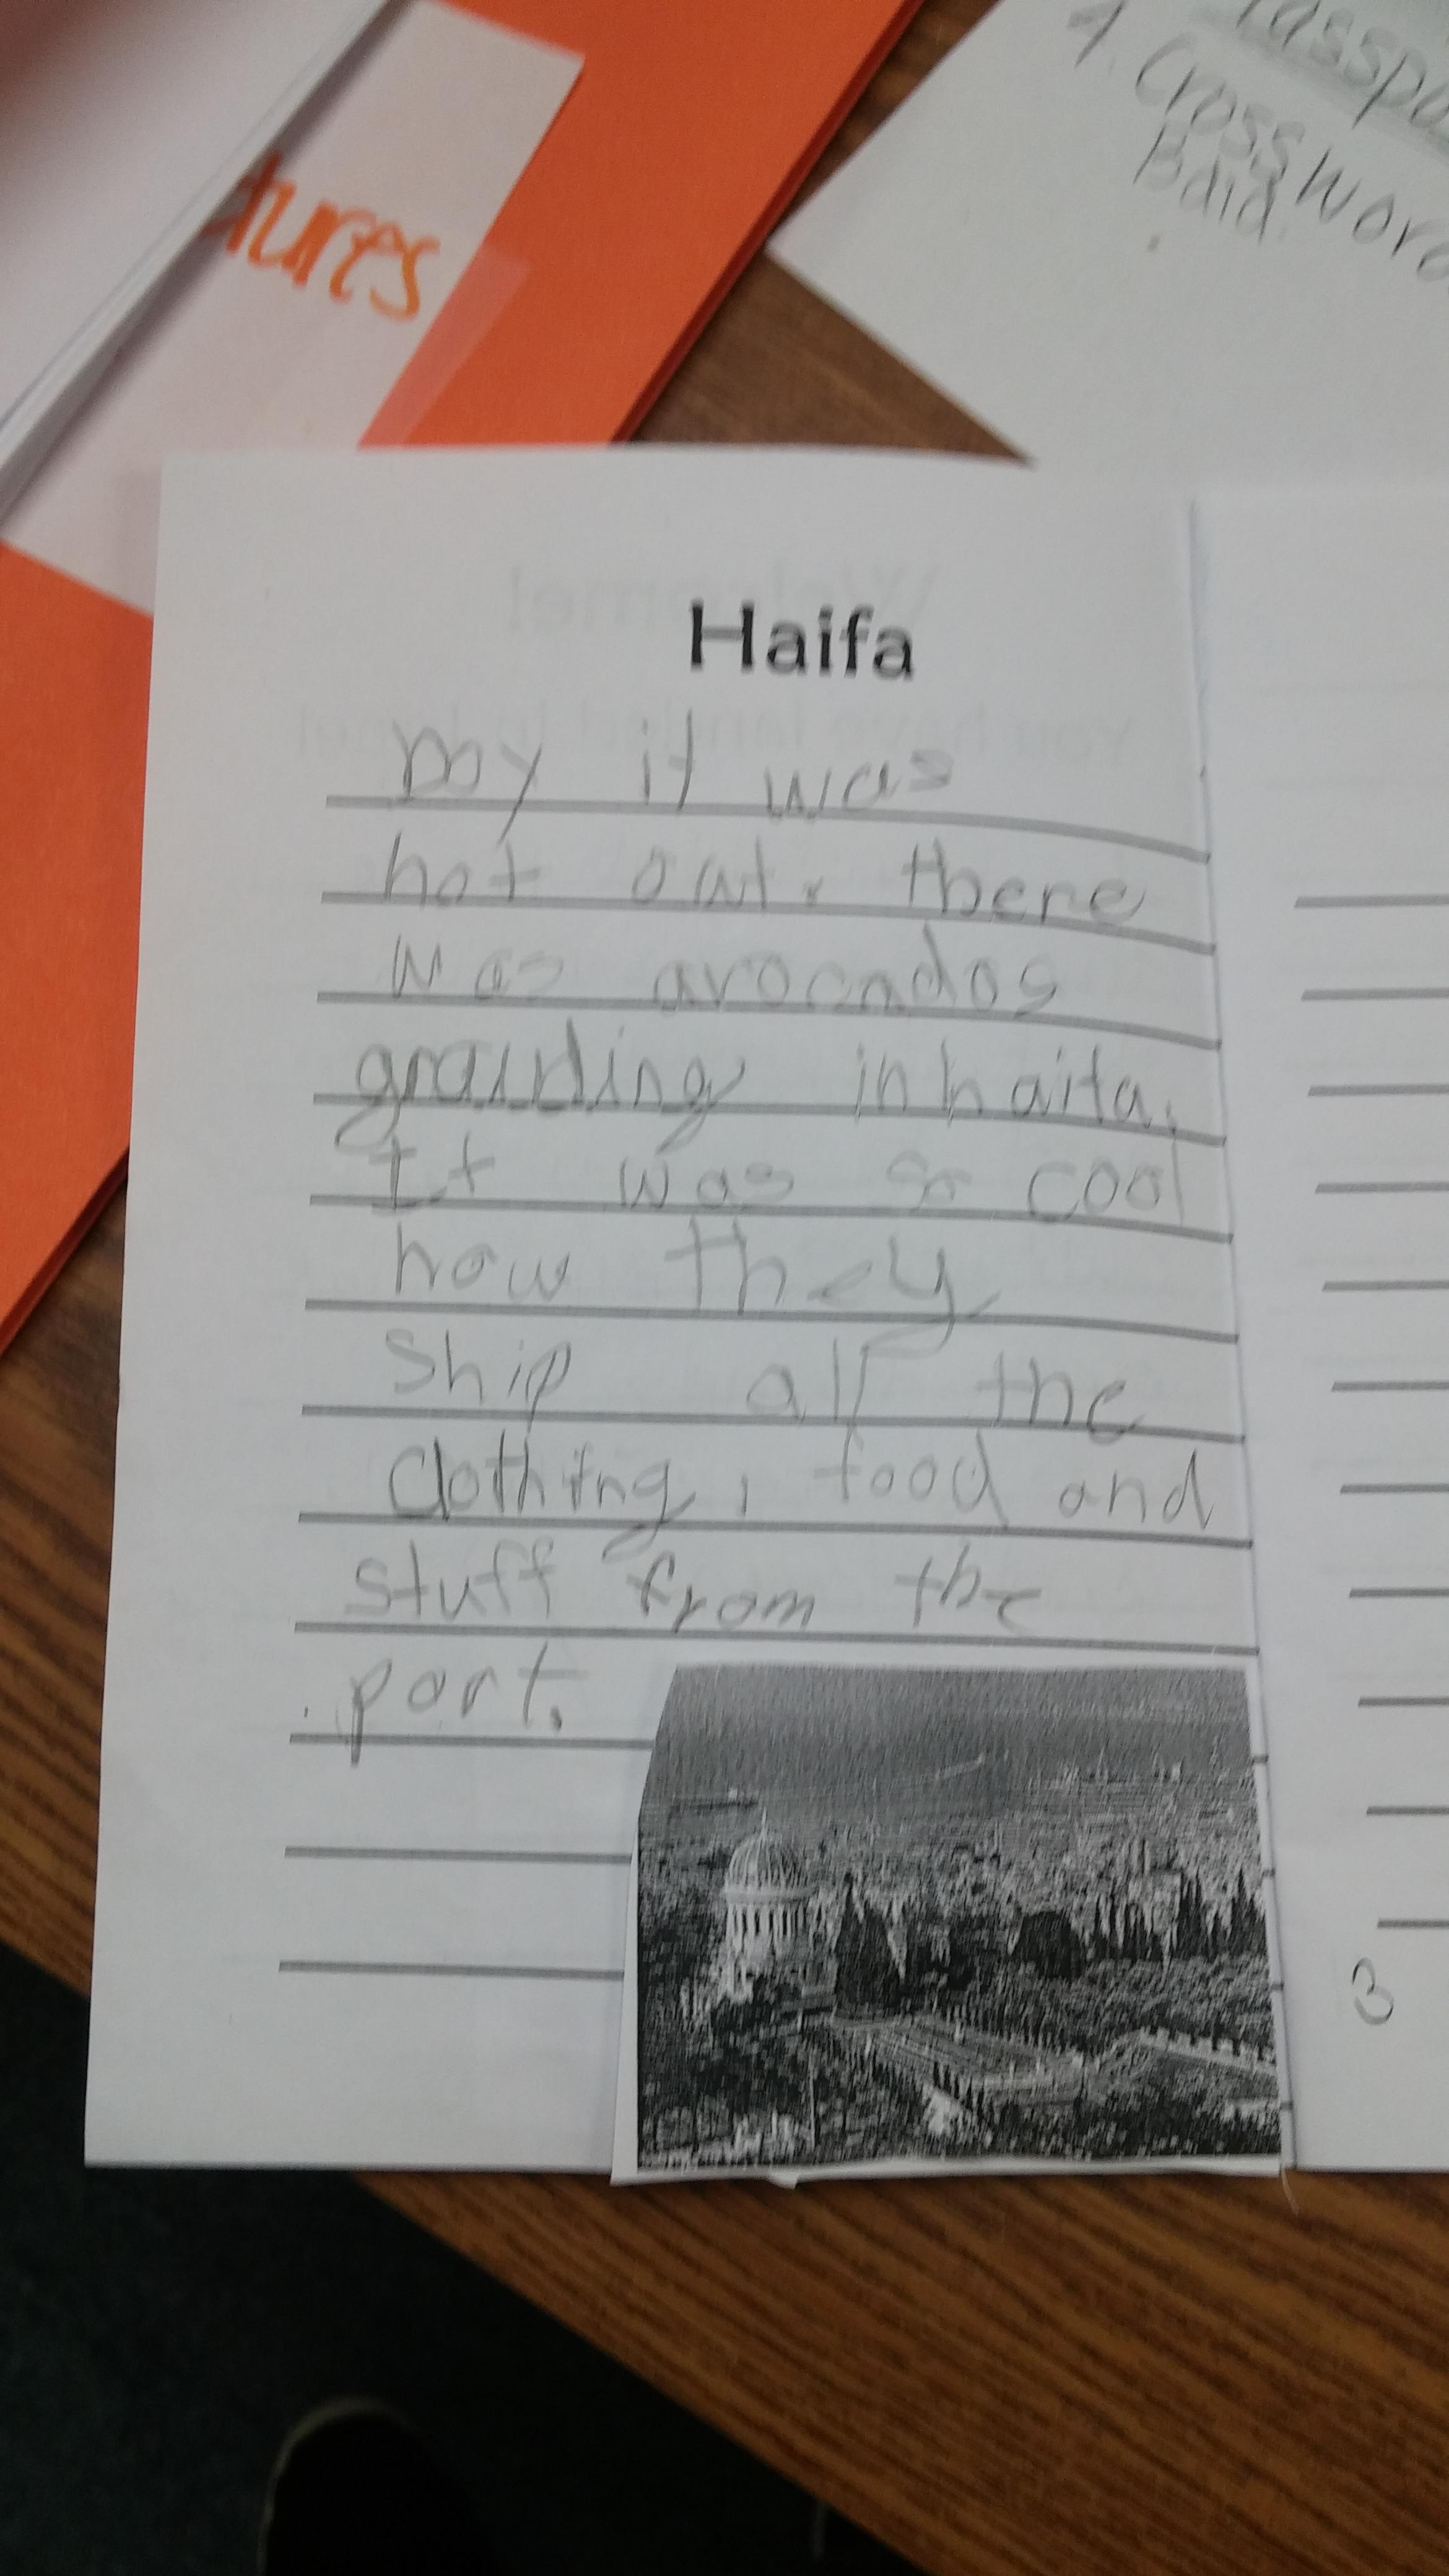 tures
7. Crossword
Haifa
boy it was
hot out. there
was avocados
in haifa.
It was so cool
how they
ship all the
clothing, food and
stuff from the
port.
3